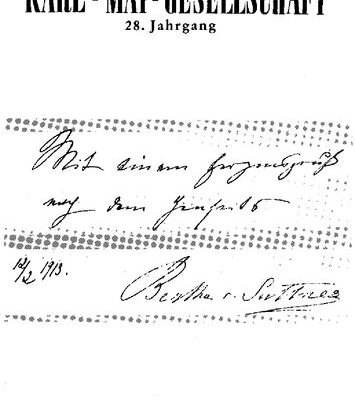 KARL - MAY - GESELLSCHAFT
28. Jahrgang
Mit einem Herzensgruß
nach dem Jenseits
12/2 1913.
Bertha v. Suttner